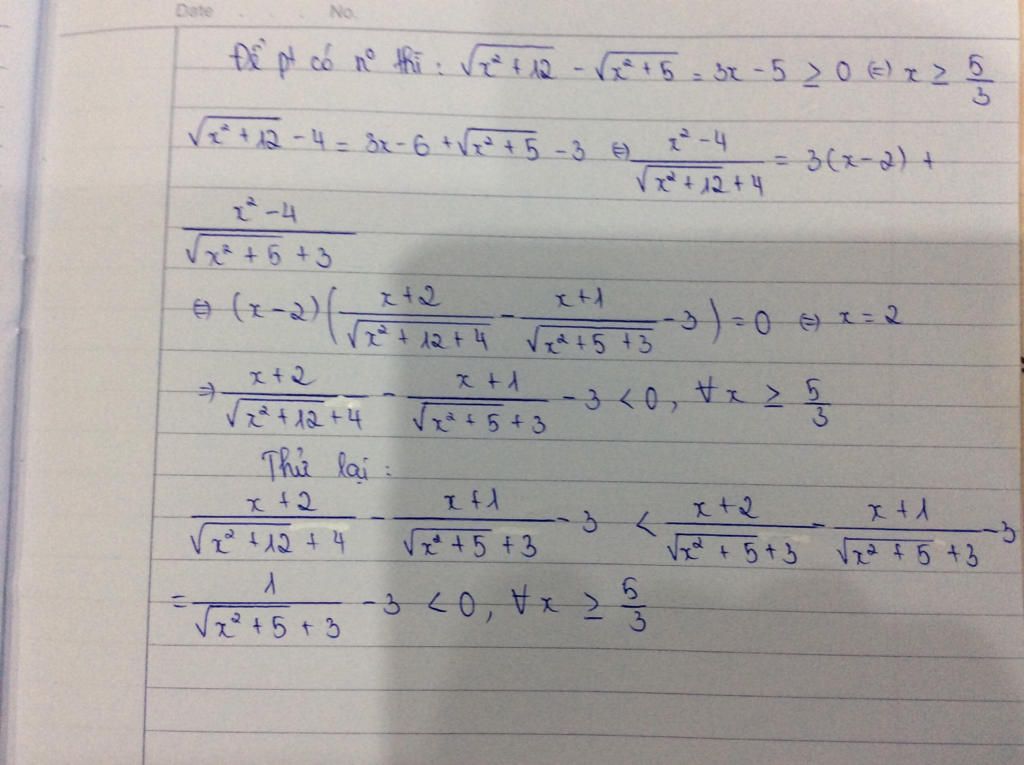 Date . . . No.
Để pt có n° thì : √(x² + 12) - √(x² + 5) = 3x - 5 ≥ 0 ⇔ x ≥ 5/3
√(x² + 12) - 4 = 3x - 6 + √(x² + 5) - 3 ⇔ (x² - 4)/(√(x² + 12) + 4) = 3(x - 2) +
(x² - 4)/(√(x² + 5) + 3)
⇔ (x - 2)((x + 2)/(√(x² + 12 + 4)) - (x + 1)/(√(x² + 5 + 3)) - 3) = 0 ⇔ x = 2
⇒ (x + 2)/(√(x² + 12) + 4) - (x + 1)/(√(x² + 5) + 3) - 3 < 0, ∀x ≥ 5/3
Thử lại :
(x + 2)/(√(x² + 12) + 4) - (x + 1)/(√(x² + 5) + 3) - 3 < (x + 2)/(√(x² + 5) + 3) - (x + 1)/(√(x² + 5) + 3) - 3
= 1/(√(x² + 5) + 3) - 3 < 0, ∀x ≥ 5/3